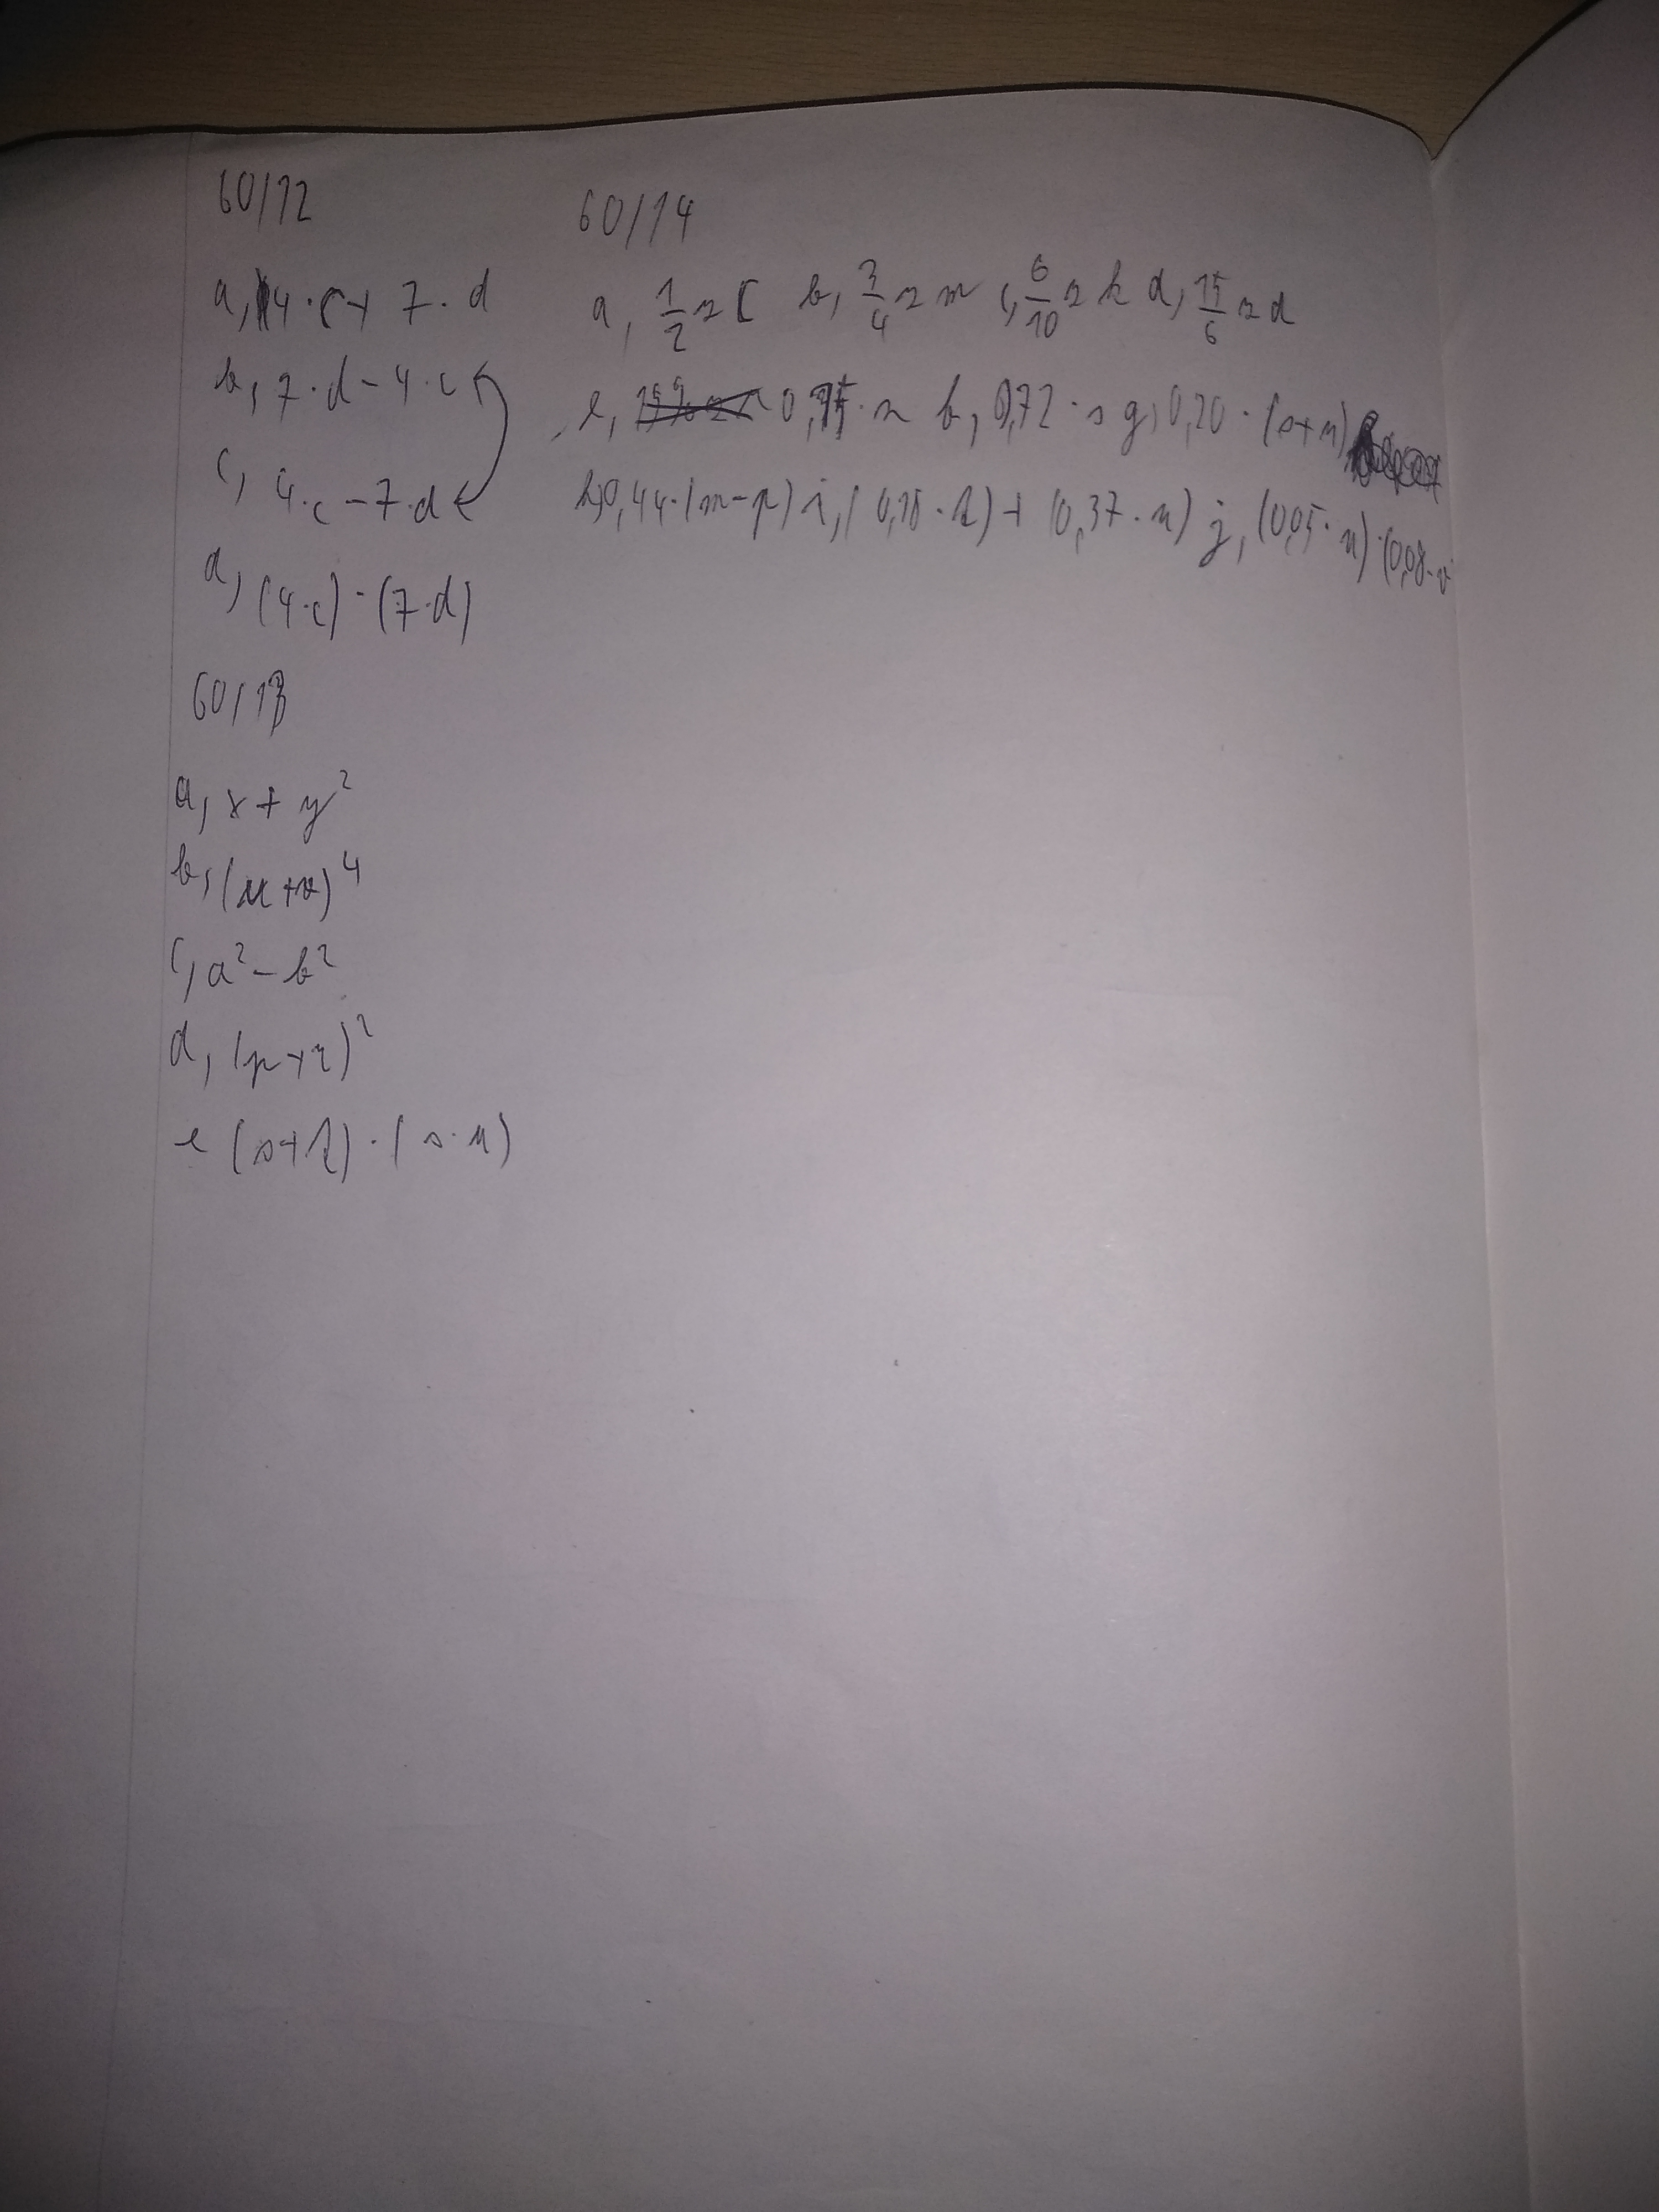 60/12
a, 4 · c + 7 · d
b, 7 · d - 4 · c
c, 4 · c - 7 · d
d, (4 · c) · (7 · d)
60/13
a, x + y²
b, (u + v)⁴
c, a² - b²
d, (p + r)²
e (s + t) · (s · u)
60/14
a, 1/2 z b, 3/4 z m c, 6/10 z k d, 15/6 z d
e, · n b, 0,72 · s g, 0,20 · (s + u)
h, 0,44 · (m - p) i, ( · t) + (0,37 · u) j, (0,05 · u) · (0,08 · v